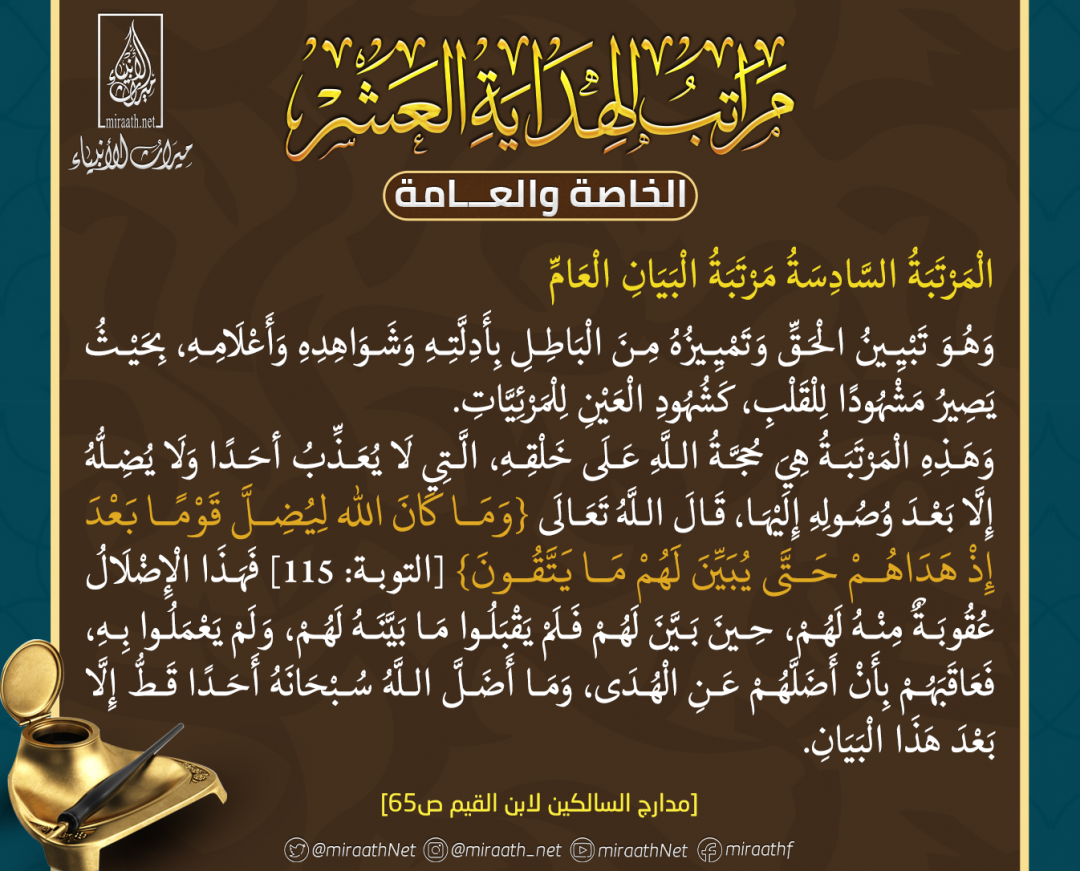 ميراث الأنبياء
miraath.net
ميراث الأنبياء
مَرَاتِبُ الهِدَايَةِ العَشْرِ
الخاصة والعـــامة
الْمَرْتَبَةُ السَّادِسَةُ مَرْتَبَةُ الْبَيَانِ الْعَامِّ
وَهُوَ تَبْيِينُ الْحَقِّ وَتَمْيِيزُهُ مِنَ الْبَاطِلِ بِأَدِلَّتِهِ وَشَوَاهِدِهِ وَأَعْلَامِهِ، بِحَيْثُ
يَصِيرُ مَشْهُودًا لِلْقَلْبِ، كَشُهُودِ الْعَيْنِ لِلْمَرْئِيَّاتِ.
وَهَذِهِ الْمَرْتَبَةُ هِيَ حُجَّةُ اللَّهِ عَلَى خَلْقِهِ، الَّتِي لَا يُعَذِّبُ أحَدًا وَلَا يُضِلُّهُ
إِلَّا بَعْدَ وُصُولِهِ إِلَيْهَا، قَالَ اللَّهُ تَعَالَى {وَمَا كَانَ الله لِيُضِلَّ قَوْمًا بَعْدَ
إِذْ هَدَاهُمْ حَتَّى يُبَيِّنَ لَهُمْ مَا يَتَّقُونَ} [التوبة: 115] فَهَذَا الْإِضْلَالُ
عُقُوبَةٌ مِنْهُ لَهُمْ، حِينَ بَيَّنَ لَهُمْ فَلَمْ يَقْبَلُوا مَا بَيَّنَهُ لَهُمْ، وَلَمْ يَعْمَلُوا بِهِ،
فَعَاقَبَهُمْ بِأَنْ أَضَلَّهُمْ عَنِ الْهُدَى، وَمَا أَضَلَّ اللَّهُ سُبْحَانَهُ أَحَدًا قَطُّ إِلَّا
بَعْدَ هَذَا الْبَيَانِ.
[مدارج السالكين لابن القيم ص65]
@miraathNet @miraath_net miraathNet miraathf